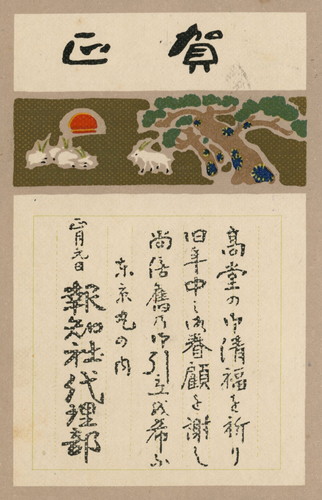 賀正
高堂の御清福を祈り
旧年中之御眷顧を謝し
尚倍舊乃御引立を希ふ
東京丸の内
正月元日
報知社代理部